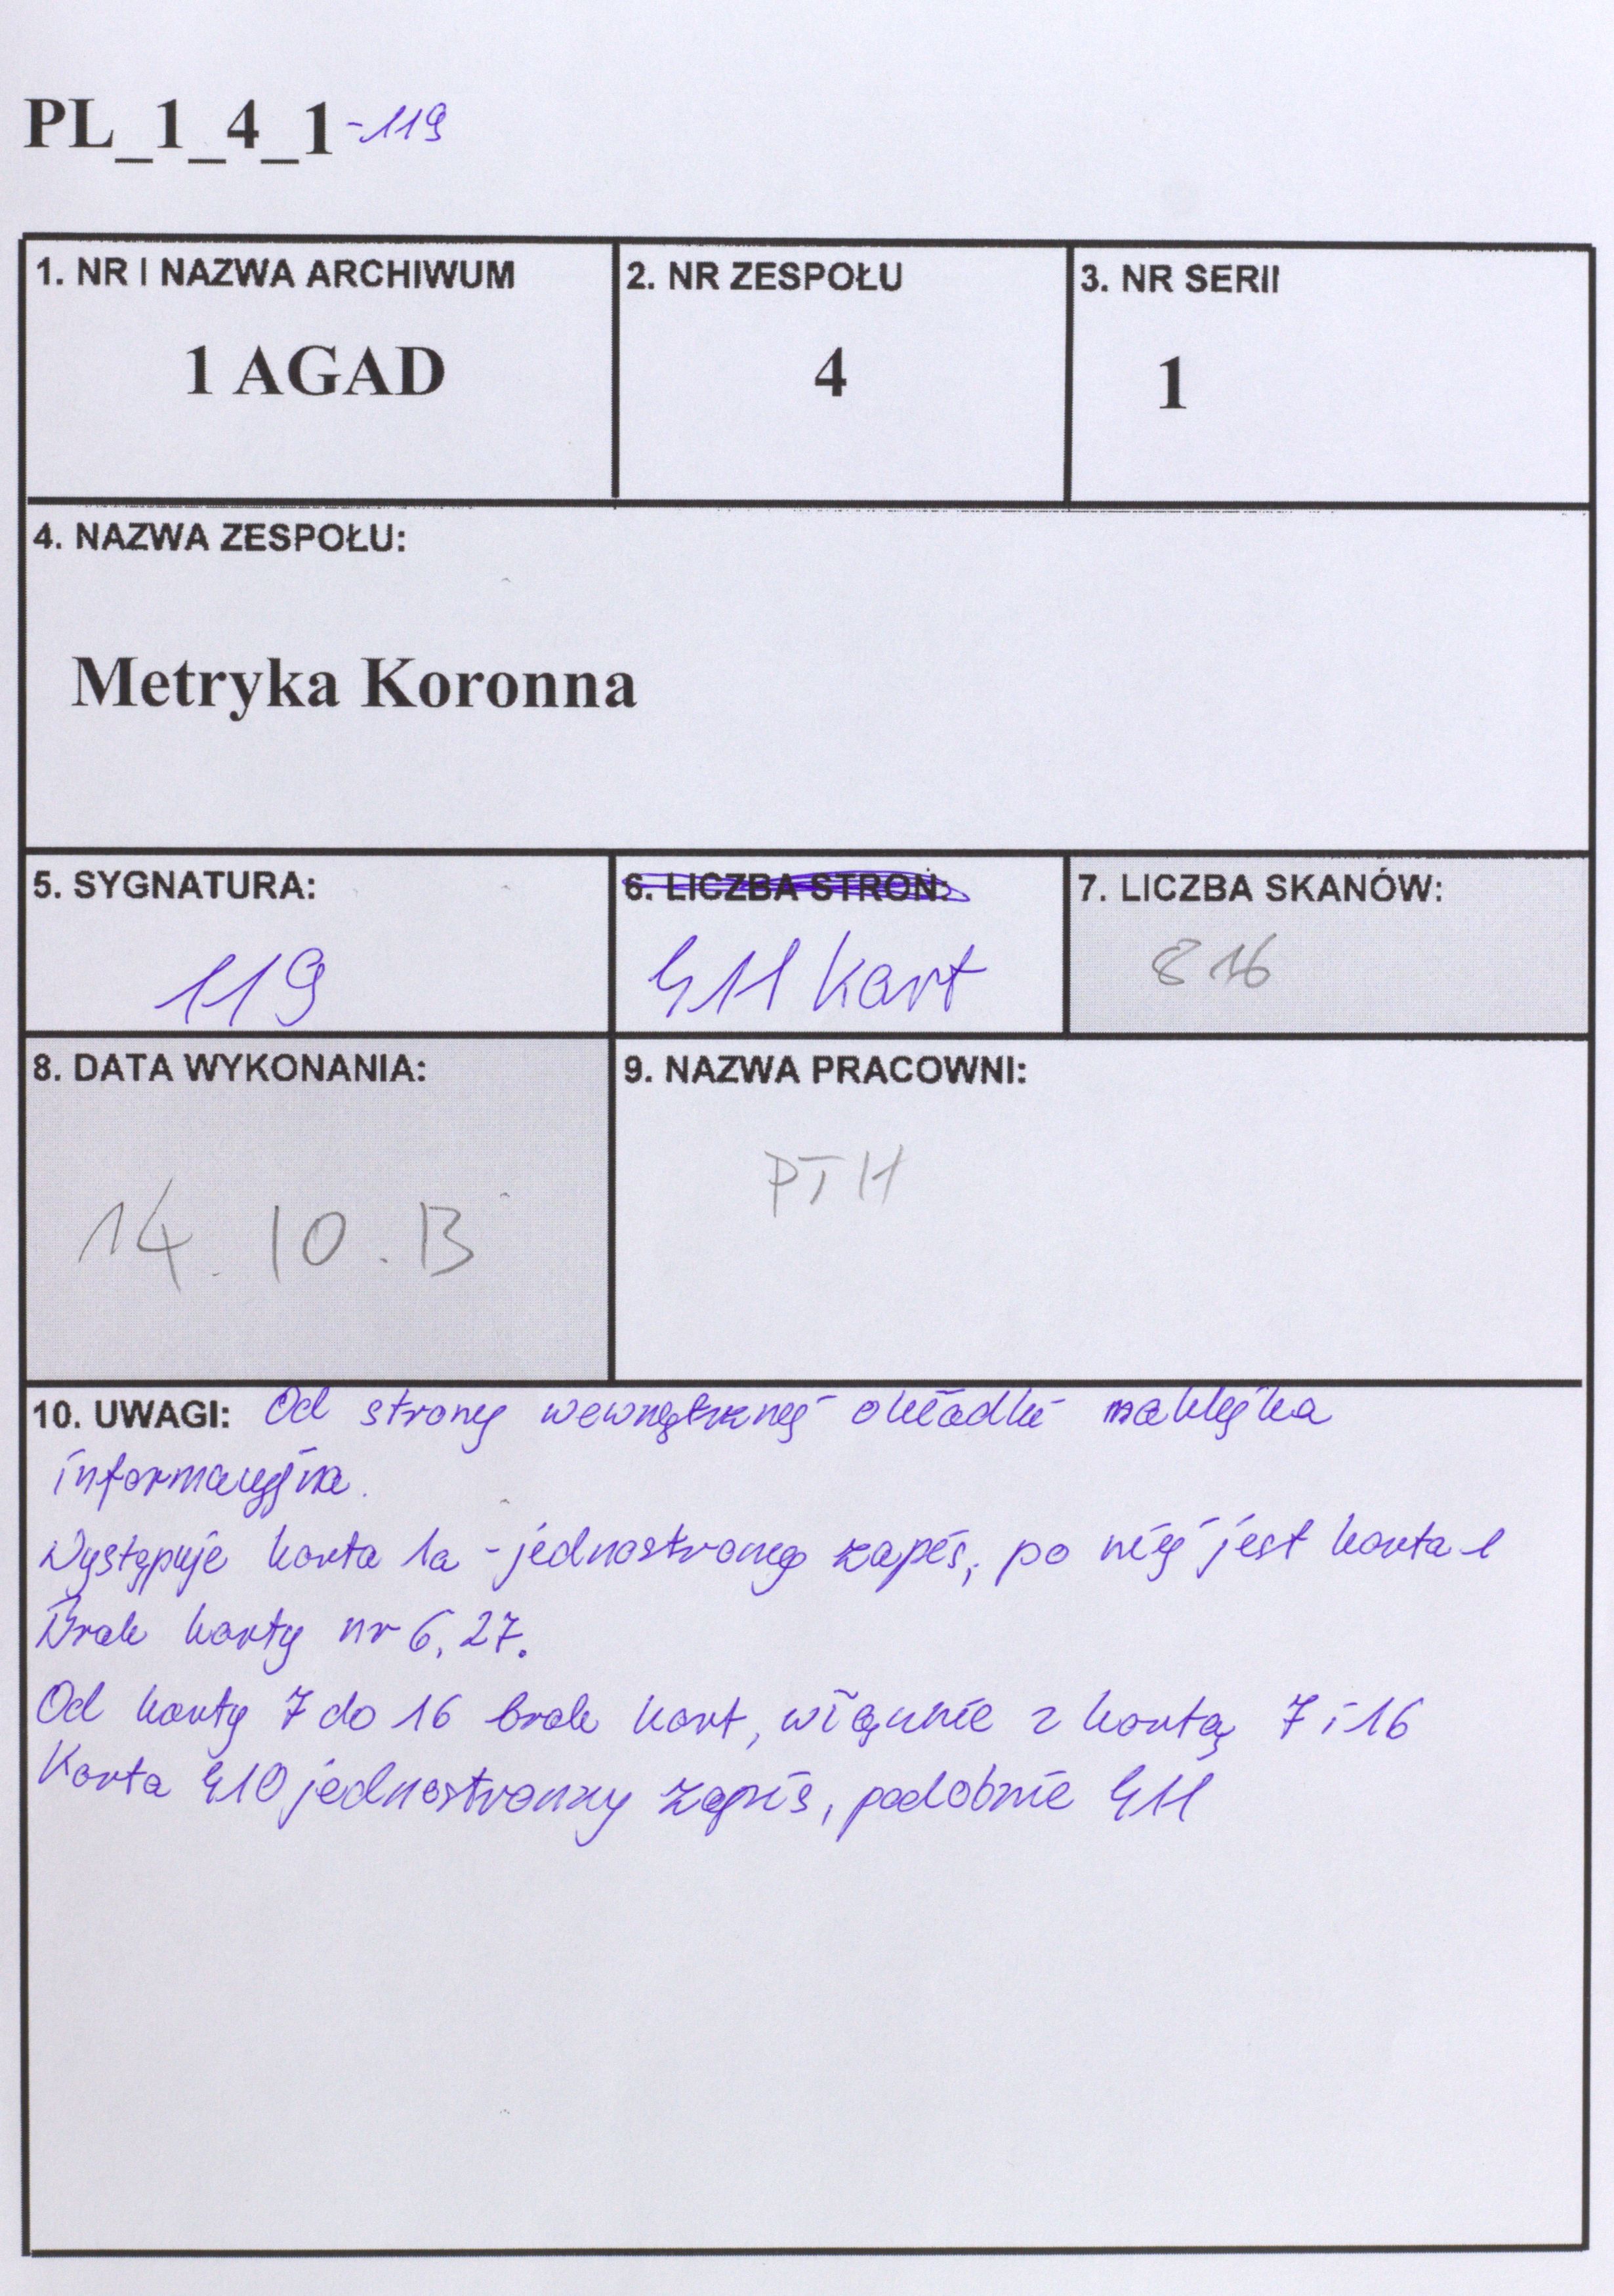 PL_1_4_1-119
1. NR I NAZWA ARCHIWUM
1 AGAD
2. NR ZESPOŁU
4
3. NR SERII
1
4. NAZWA ZESPOŁU:
Metryka Koronna
5. SYGNATURA:
119
6. LICZBA STRON:
411 kart
7. LICZBA SKANÓW:
816
8. DATA WYKONANIA:
14.10.13
9. NAZWA PRACOWNI:
PTH
10. UWAGI: Od strony wewnętrznej okładki naklejka
informacyjna.
Występuje karta 1a - jednostronny zapis, po niej jest karta 1
Brak karty nr 6, 27.
Od karty 7 do 16 brak kart, włącznie z kartą 7 i 16
Karta 410 jednostronny zapis, podobnie 411